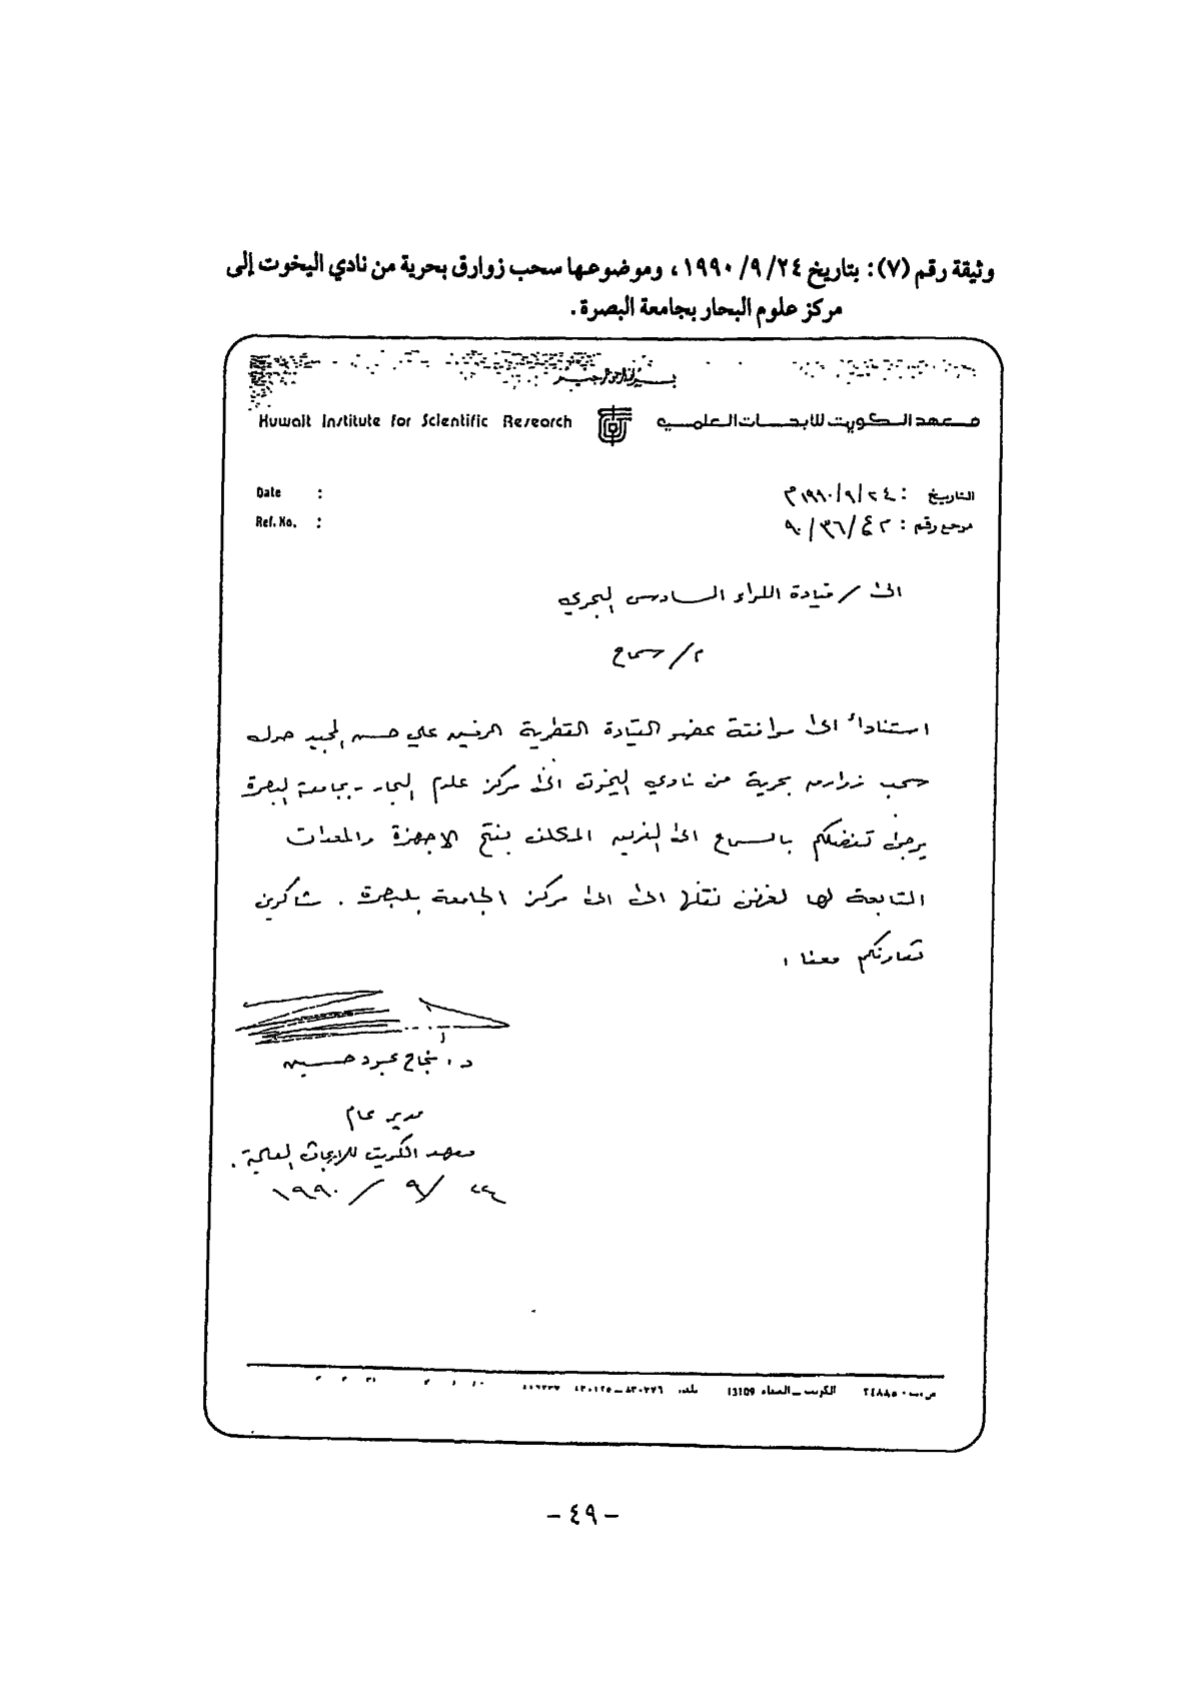 وثيقة رقم (٧): بتاريخ ٢٤/ ٩/ ١٩٩٠ ، وموضوعها سحب زوارق بحرية من نادي اليخوت إلى
مركز علوم البحار بجامعة البصرة .
بسم الله الرحمن الرحيم
Kuwait Institute for Scientific Research معهد الكويت للأبحاث العلمية
Date : التاريخ : ٢٤/٩/١٩٩٠م
Ref. No. : مرجع رقم : ٤٢/٣٦/٩٠
الى / قيادة اللواء السادس البحري
م/ سماح
استناداً الى موافقة عضو القيادة القطرية الرفيق علي حسن المجيد حول
سحب زوارق بحرية من نادي اليخوت الى مركز علوم البحار - بجامعة البصرة
يرجى تفضلكم بالسماح الى الفريق المكلف بفتح الاجهزة والمعدات
التابعة لها لغرض نقلها الى الى مركز الجامعة بالبصرة . شاكرين
تعاونكم معنا
د . نجاح عبود حسين
مدير عام
معهد الكويت للابحاث العلمية .
٢٤ / ٩ / ١٩٩٠
ص.ب. ٢٤٨٨٥ الكويت ـ الصفاه 13109
- ٤٩ -